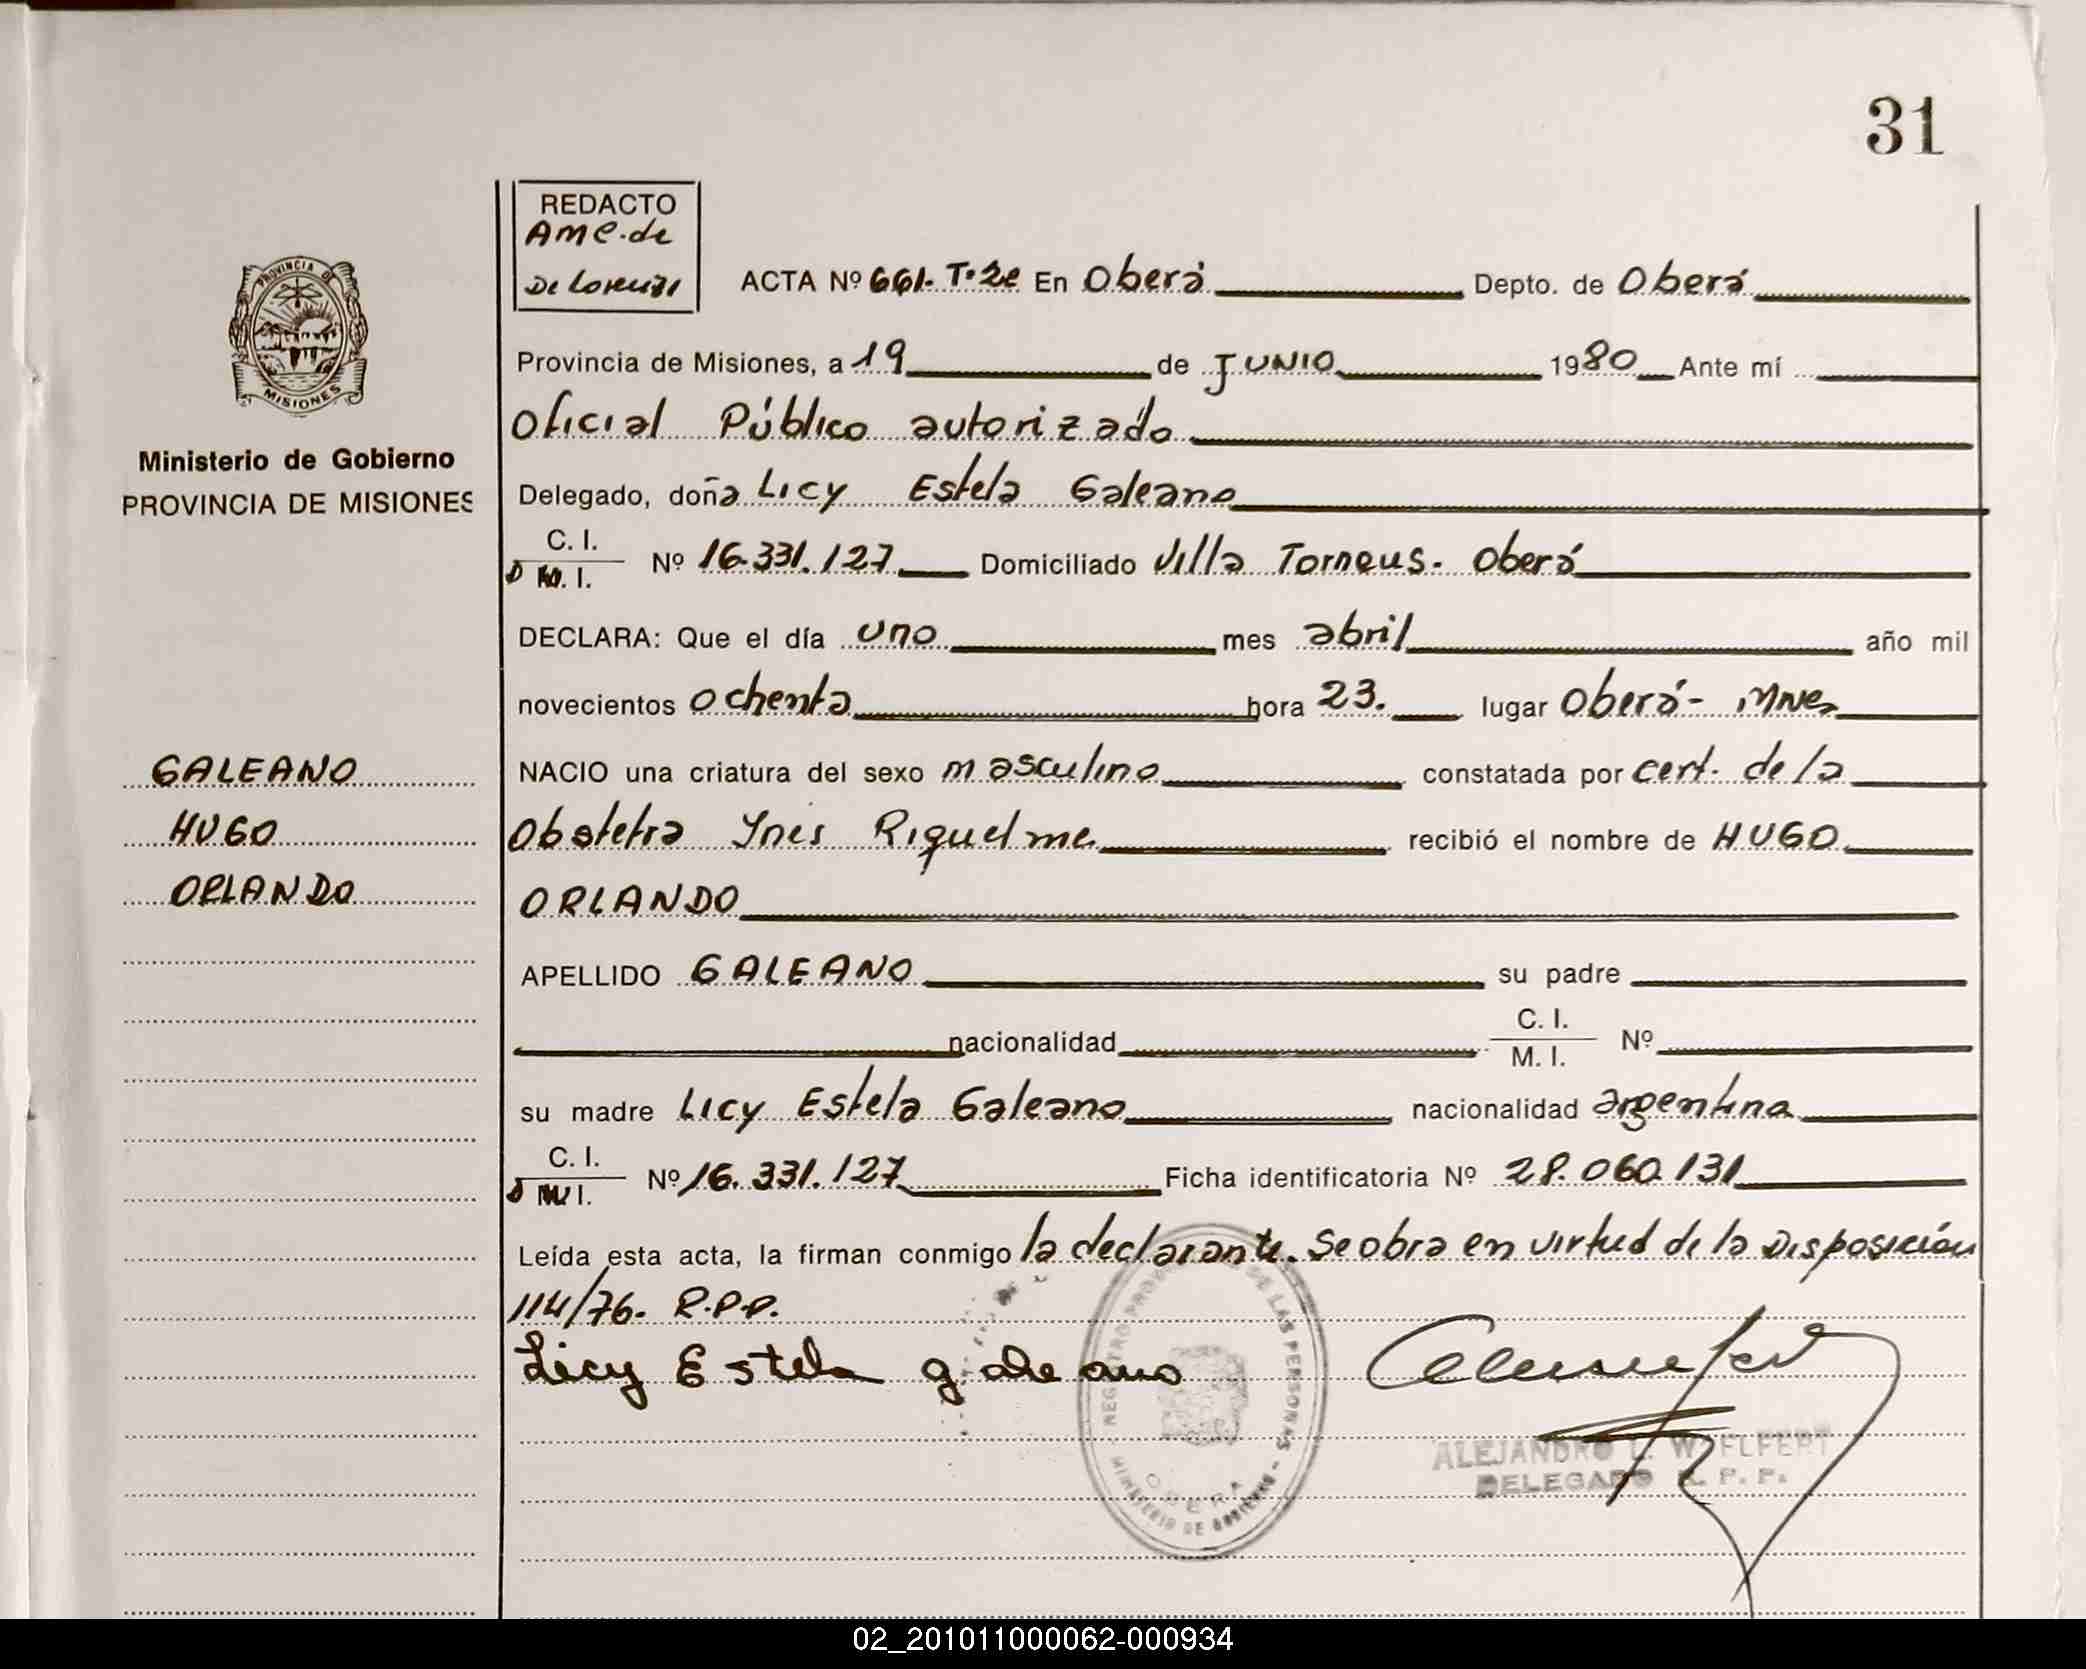 31
REDACTO
AMC. de
De Lorenzi
ACTA Nº 661. T. 2e En Oberá Depto. de Oberá
PROVINCIA DE
MISIONES
Provincia de Misiones, a 19 de JUNIO 1980 Ante mí
Oficial Público autorizado
Ministerio de Gobierno
PROVINCIA DE MISIONES
Delegado, doña Licy Estela Galeano
C. I.
D M. I. Nº 16.331.127 Domiciliado Villa Torneus. Oberá
DECLARA: Que el día uno mes abril año mil
novecientos ochenta hora 23. lugar Oberá- Mnes
GALEANO
HUGO
ORLANDO
NACIO una criatura del sexo masculino constatada por cert. de la
Obstetra Ynes Riquelme recibió el nombre de HUGO
ORLANDO
APELLIDO GALEANO su padre
nacionalidad C. I. Nº
M. I.
su madre Licy Estela Galeano nacionalidad argentina
C. I.
D M. I. Nº 16.331.127 Ficha identificatoria Nº 28.060.131
Leída esta acta, la firman conmigo la declarante. Se obra en virtud de la Disposición
114/76. R.P.P.
Licy Estela galeano
REGISTRO PROV. DE LAS PERSONAS - MINISTERIO DE GOBIERNO -
OBERA
ALEJANDRO
DELEGADO R. P. P.
02_201011000062-000934